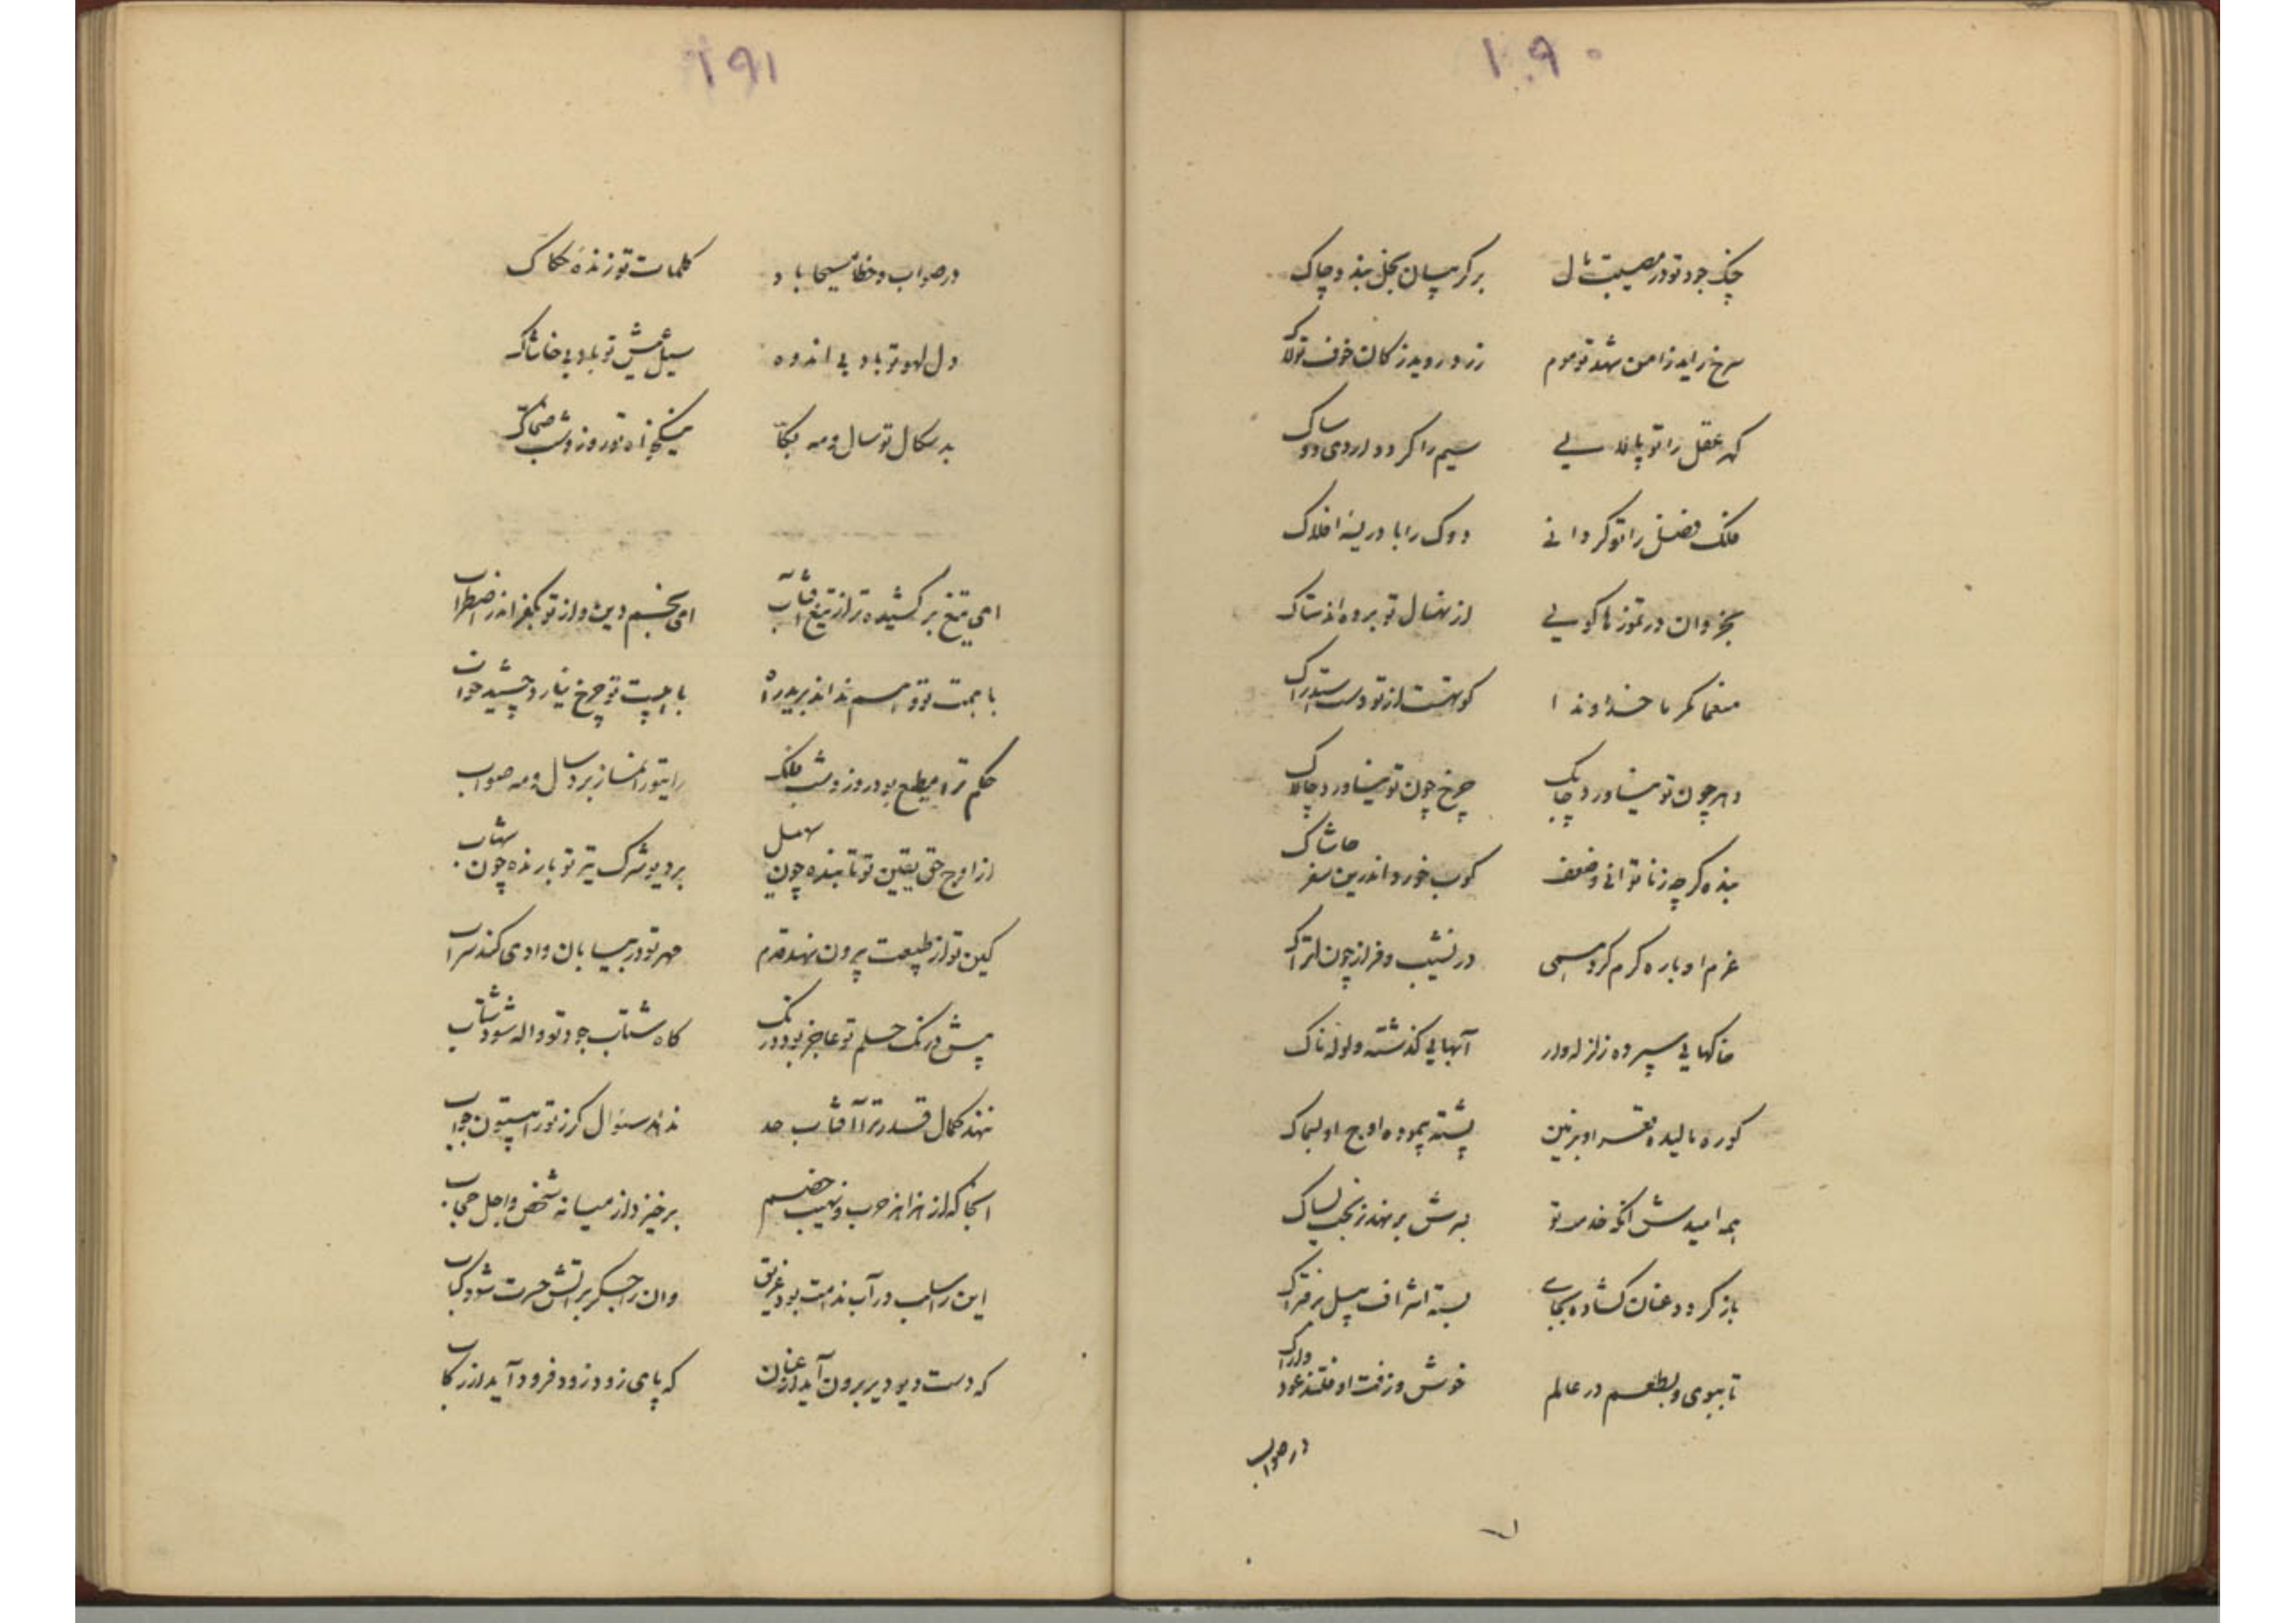 ۱۹۰
چنگ جود تو در مصیبت مال بر گریبان بخل بندد چاک
سرخ زاید ز امن شهد تو موم زرد روید ز کان خوف تو لاک
گهر عقل را تو پالایی سیم را گر دو دارد ی دو ساک
فلک فضل را تو گردانی دوک را بادریسه افلاک
بخزد وان در تموز ها گویی از نهال تو برده اند ستاک
منعما مکرما خداوندا کوتهست از تو دست استدراک
دهر چون تو نیاورد چابک چرخ چون تو نیاورد چالاک
بنده گرچه ز ناتوانی و ضعف کوب خورد اندرین سفر حاشاک
عزم او باره گرم کرد همی در نشیب و فراز چون اتراک
خاکهایی سپرده زلزله وار آبهایی گذشته ولوله ناک
کوره مالیده قعر او بزمین پشته پیموده اوج او بسماک
همه امیدش آنکه خدمت تو بر سرش بر نهد ز نجب
باز گردد عنان گشاده بجای بسته اشراف پیل بر فتراک
تا ببوی و بطعم در عالم خوش و زفت اوفتند عود و اراک
در صواب
۱۹۱
در صواب و خطا مسیحا باد کلمات تو زنده حکاک
دل لهو تو باد بی اندوه سیل عیش تو باد بی خاشاک
بدسگال تو سال و مه بکا نیکخواه تو روز و شب ضحاک
ای تیغ برکشیده تر از تیغ آفتاب ای بخشم دین و از تو بکفر اندر اضطراب
با همت تو وهم نداند برید راه با هیبت تو چرخ نیارد چشید خواب
حکم ترا مطیع بود روز و شب فلک رای تو را نماز برد سال و مه صواب
از اوج حق یقین تو تابنده چون سهیل بر دیو شرک تیر تو بارنده چون شهاب
کین تو از طبیعت بیرون نهد قدم مهر تو در بیابان وادی کند سراب
پیش درنگ حلم تو عاجز بود درنگ گاه شتاب جود تو واله شود شتاب
ننهد کمال قدر ترا آفتاب حد ندهد سؤال گرز تو را بیستون جواب
آنجا که از هزاهز حرب و نهیب خصم برخیزد از میانه شخص و اجل حجاب
این را سلب در آب ندامت بود غریق وان را جگر بر آتش حسرت شود کباب
که دست دیو دیر برون آید از عنان که پای زود زود فرود آید از رکاب